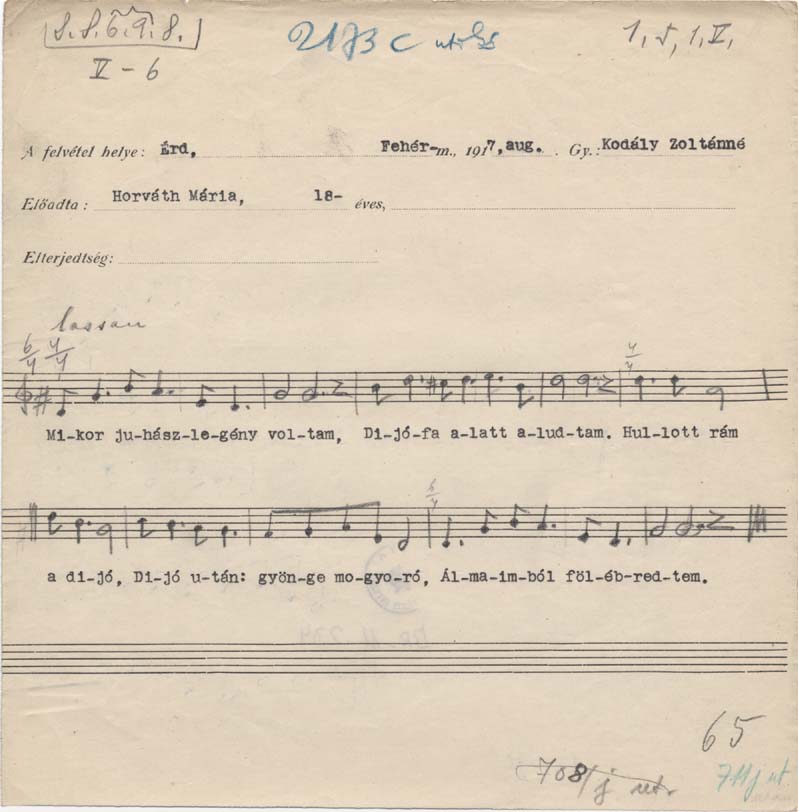 8.8.6.9.8.
V - 6
2173 c
1, 5, 1, V,
A felvétel helye: Érd, Fehér-m., 1917, aug. Gy.: Kodály Zoltánné
Előadta: Horváth Mária, 18- éves,
Elterjedtség:
lassan
6/4 4/4
4/4
Mi-kor ju-hász-le-gény vol-tam, Di-jó-fa a-latt a-lud-tam. Hul-lott rám
6/4
a di-jó, Di-jó u-tán: gyön-ge mo-gyo-ró, Ál-ma-im-ból föl-éb-red-tem.
65
708/j ut.
711 j ut